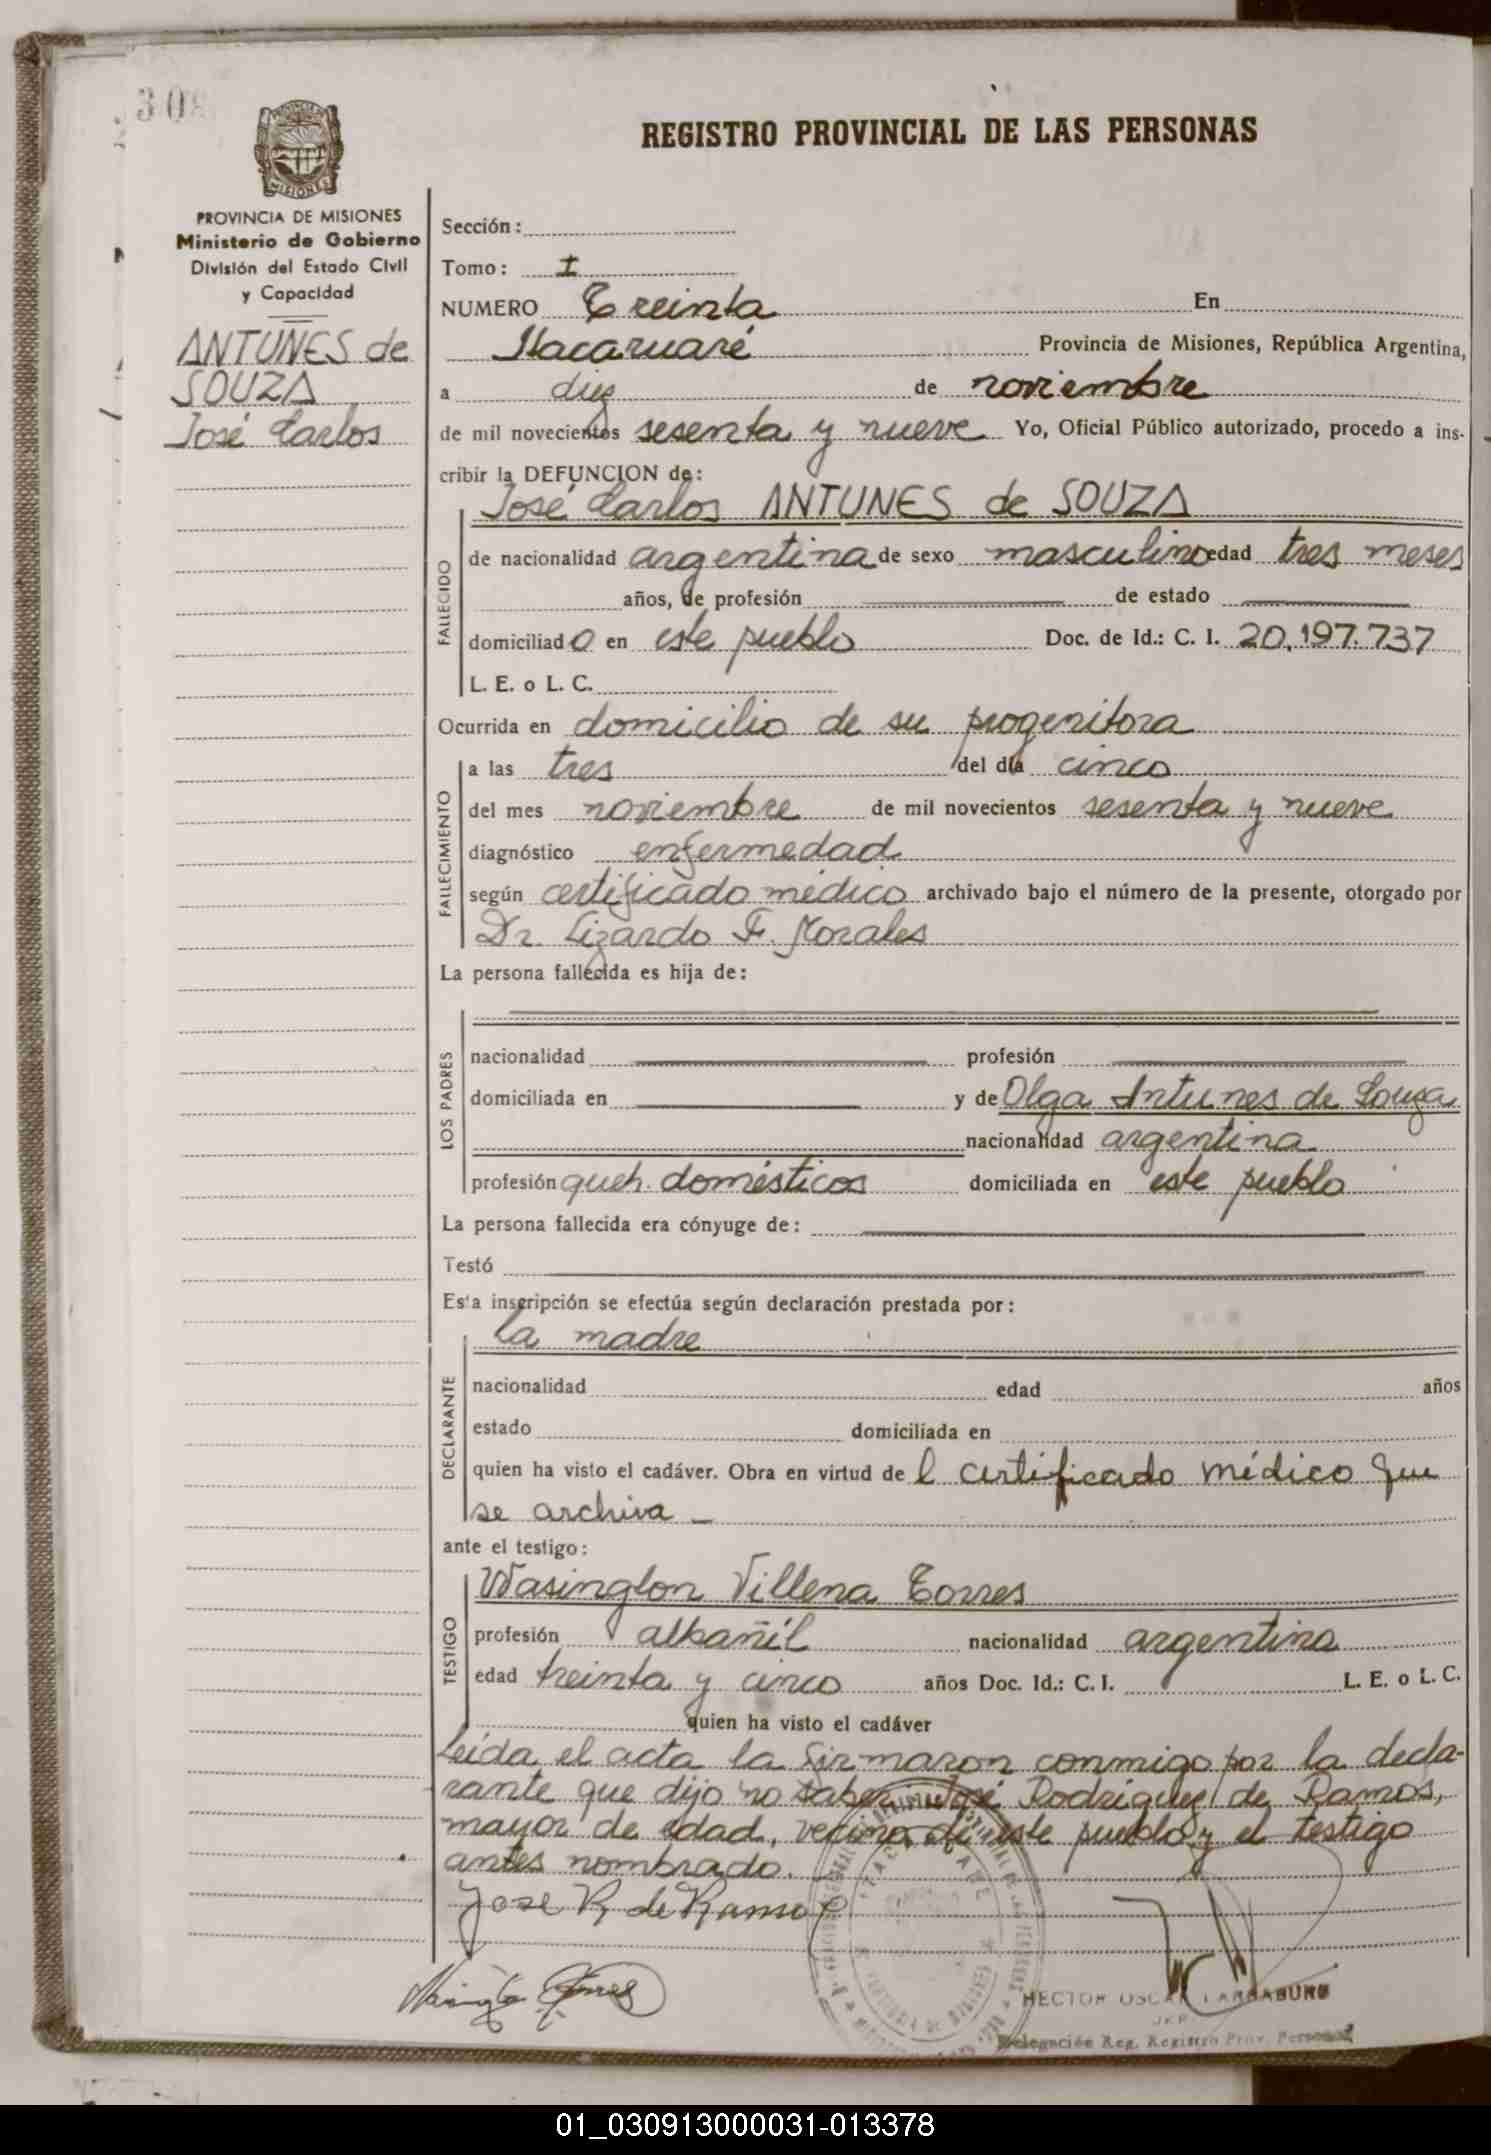 308
REGISTRO PROVINCIAL DE LAS PERSONAS
PROVINCIA DE MISIONES
Ministerio de Gobierno
División del Estado Civil
y Capacidad
ANTUNES de
SOUZA
José Carlos
Sección:
Tomo: I
NUMERO Treinta En
Itacaruaré Provincia de Misiones, República Argentina,
a diez de noviembre
de mil novecientos sesenta y nueve Yo, Oficial Público autorizado, procedo a ins-
cribir la DEFUNCION de:
José Carlos ANTUNES de SOUZA
FALLECIDO
de nacionalidad argentina de sexo masculino edad tres meses
años, de profesión de estado
domiciliado en este pueblo Doc. de Id.: C. I. 20.197.737
L. E. o L. C.
Ocurrida en domicilio de su progenitora
FALLECIMIENTO
a las tres del día cinco
del mes noviembre de mil novecientos sesenta y nueve
diagnóstico enfermedad
según certificado médico archivado bajo el número de la presente, otorgado por
Dr. Lizardo F. Morales
La persona fallecida es hija de:
LOS PADRES
nacionalidad profesión
domiciliada en y de Olga Antunes de Souza
nacionalidad argentina
profesión queh. domésticos domiciliada en este pueblo
La persona fallecida era cónyuge de:
Testó
Esta inscripción se efectúa según declaración prestada por:
la madre
DECLARANTE
nacionalidad edad años
estado domiciliada en
quien ha visto el cadáver. Obra en virtud de l certificado médico que
se archiva -
ante el testigo:
Wasington Villena Torres
TESTIGO
profesión albañil nacionalidad argentina
edad treinta y cinco años Doc. Id.: C. I. L. E. o L. C.
quien ha visto el cadáver
Leída el acta la firmaron conmigo por la decla-
rante que dijo no saber José Rodríguez de Ramos,
mayor de edad, vecino de este pueblo y el testigo
antes nombrado.
Jose R de Ramos
HECTOR OSCAR
Delegación Reg. Registro Prov. Personas
01_030913000031-013378